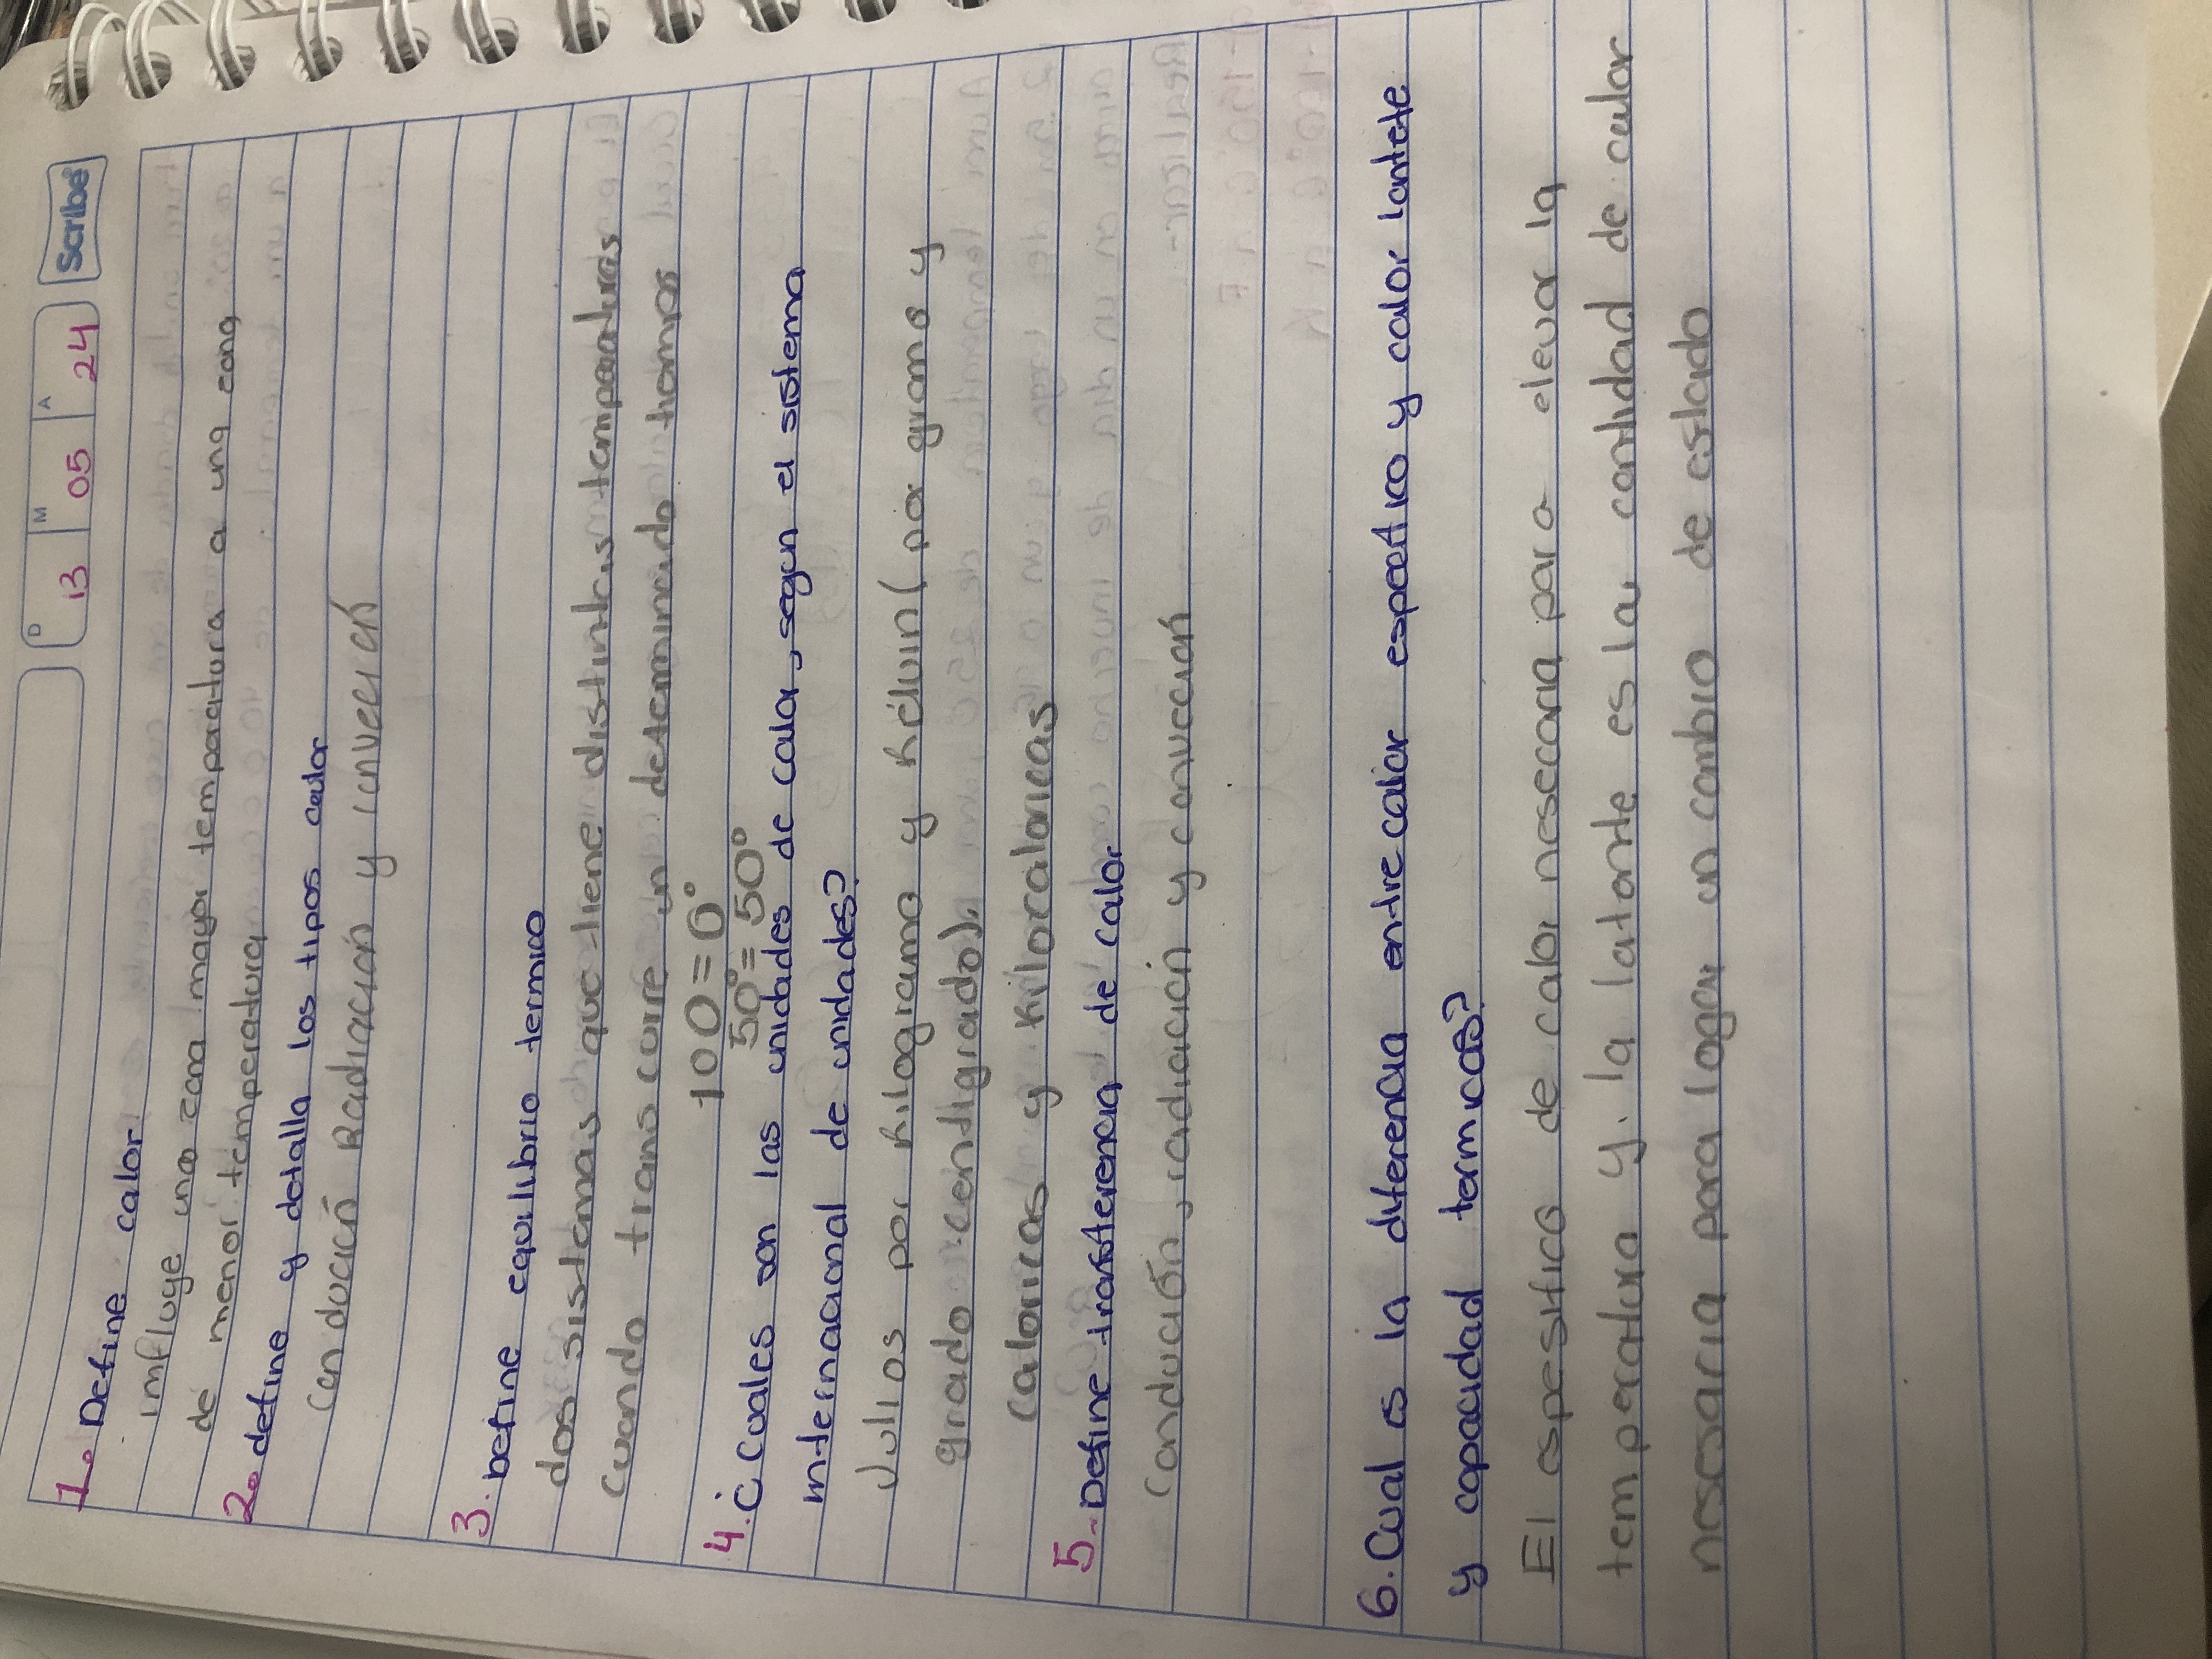 D M A
13 05 24 Scribe
1. Define calor
imfluye una zona mayor temperatura a una zona
de menor temperatura
2. define y detalla los tipos calor
conducción Radiación y convección
3. Define equilibrio termico
dos sistemas que tiene distintas temperaturas
cuando trans curre un determinado tiempo
100=0°
50°=50°
4. ¿Cuales son las unidades de calor, segun el sistema
internacional de unidades?
Julios por kilogramo y kélvin (por gramo y
grado centigrado)
caloricas y kilocaloricas
5. Define transferencia de calor
Conducción, radiación y convección
6. Cual es la diferencia entre calor especifico y calor lantete
y capacidad termicas?
El espesifico de calor nesecaria para elevar la
temperatura y. la latante es la contidad de calor
nesesaria para logar un cambio de estado